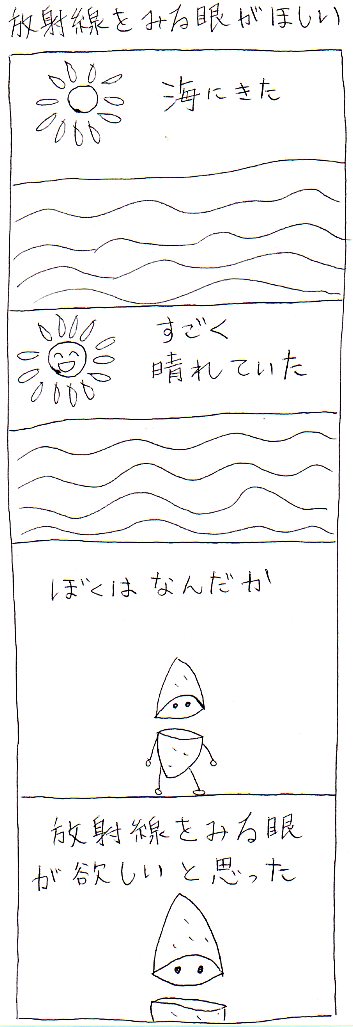 放射線をみる眼がほしい
海にきた
すごく
晴れていた
ぼくはなんだか
放射線をみる眼
が欲しいと思った